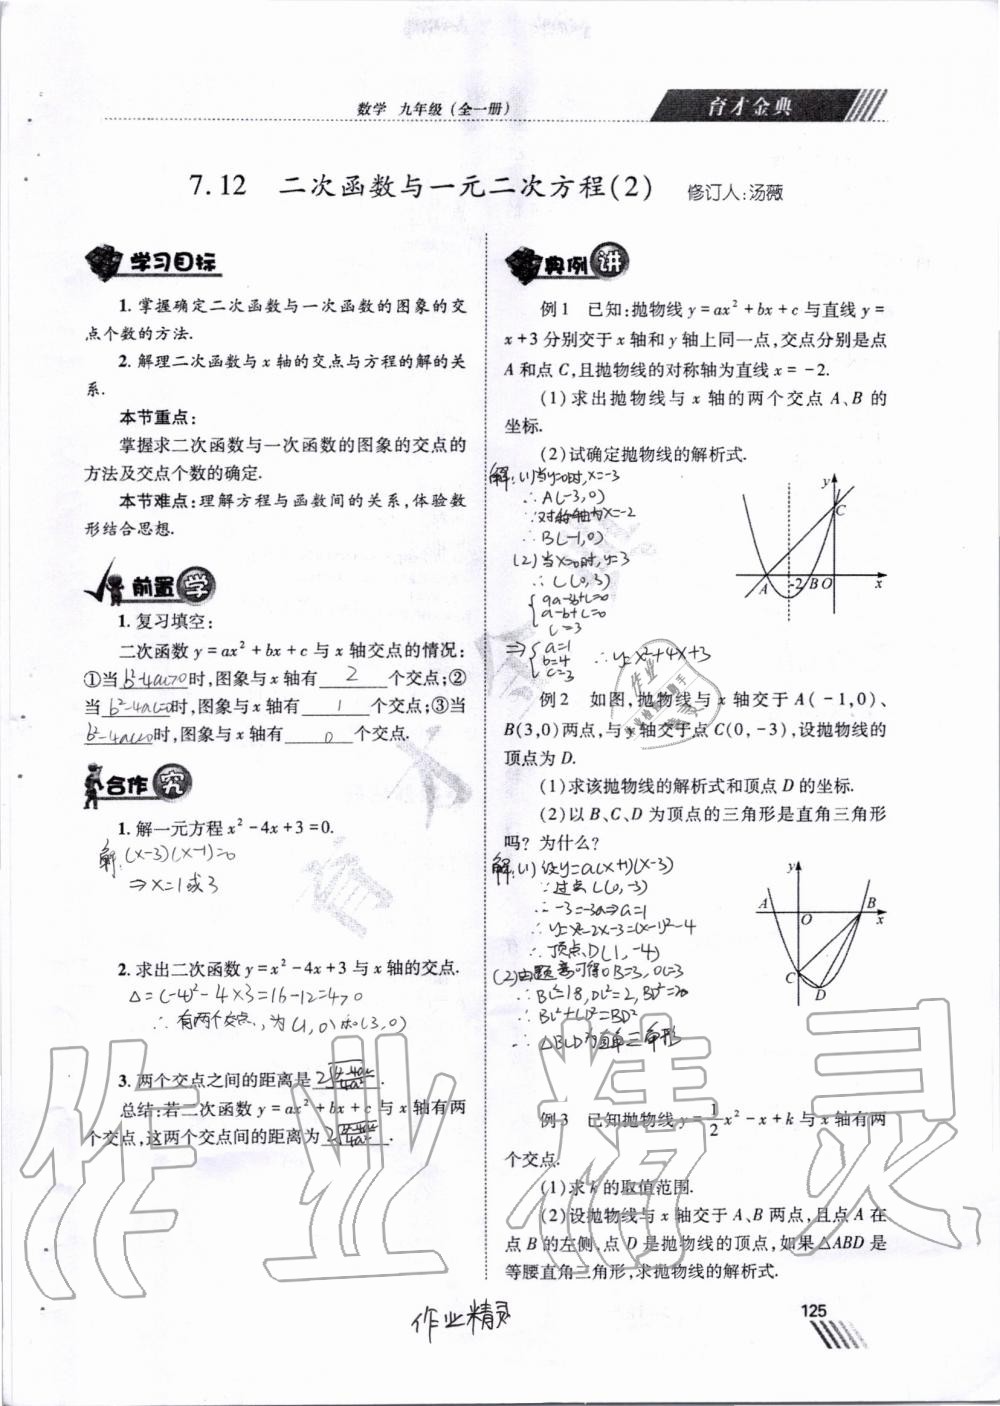 数学 九年级(全一册)
育才金典
7.12 二次函数与一元二次方程(2) 修订人:汤薇
学习目标
1. 掌握确定二次函数与一次函数的图象的交
点个数的方法.
2. 解理二次函数与x轴的交点与方程的解的关
系.
本节重点:
掌握求二次函数与一次函数的图象的交点的
方法及交点个数的确定.
本节难点:理解方程与函数间的关系,体验数
形结合思想.
前置 学
1. 复习填空:
二次函数 y=ax²+bx+c 与 x 轴交点的情况:
①当 b²-4ac>0 时,图象与 x 轴有 2 个交点;②
当 b²-4ac=0 时,图象与 x 轴有 1 个交点;③当
b²-4ac<0 时,图象与 x 轴有 0 个交点.
合作 究
1. 解一元方程 x²-4x+3=0.
解:(x-3)(x-1)=0
⇒x=1或3
2. 求出二次函数 y=x²-4x+3 与 x 轴的交点.
Δ=(-4)²-4×3=16-12=4>0
∴有两个交点,为(1,0)和(3,0)
3. 两个交点之间的距离是
总结:若二次函数 y=ax²+bx+c 与 x 轴有两
个交点,这两个交点间的距离为
典例 讲
例1 已知:抛物线 y=ax²+bx+c 与直线 y=
x+3 分别交于 x 轴和 y 轴上同一点,交点分别是点
A 和点 C,且抛物线的对称轴为直线 x=-2.
(1)求出抛物线与 x 轴的两个交点 A、B 的
坐标.
(2)试确定抛物线的解析式.
解:(1)当y=0时,x=-3
∴A(-3,0)
∵对称轴为x=-2
∴B(-1,0)
(2)当x=0时,y=3
∴C(0,3)
9a-3b+c=0
a-b+c=0
c=3
⇒ a=1
b=4
c=3
∴y=x²+4x+3
y
C
A
-2
B
O
x
例2 如图,抛物线与 x 轴交于 A(-1,0)、
B(3,0)两点,与 y 轴交于点 C(0,-3),设抛物线的
顶点为 D.
(1)求该抛物线的解析式和顶点 D 的坐标.
(2)以 B、C、D 为顶点的三角形是直角三角形
吗?为什么?
解:(1)设y=a(x+1)(x-3)
∵过点C(0,-3)
∴-3=-3a⇒a=1
∴y=x²-2x-3=(x-1)²-4
∴顶点D(1,-4)
(2)由题意可得OB=3,OC=3
∴BC²=18,DC²=2,BD²=20
∴BC²+CD²=BD²
∴△BCD为直角三角形
y
A
O
B
x
C
D
例3 已知抛物线 y=1/2x²-x+k 与 x 轴有两
个交点.
(1)求 k 的取值范围.
(2)设抛物线与 x 轴交于 A、B 两点,且点 A 在
点 B 的左侧,点 D 是抛物线的顶点,如果△ABD 是
等腰直角三角形,求抛物线的解析式.
作业精灵
作业精灵
125